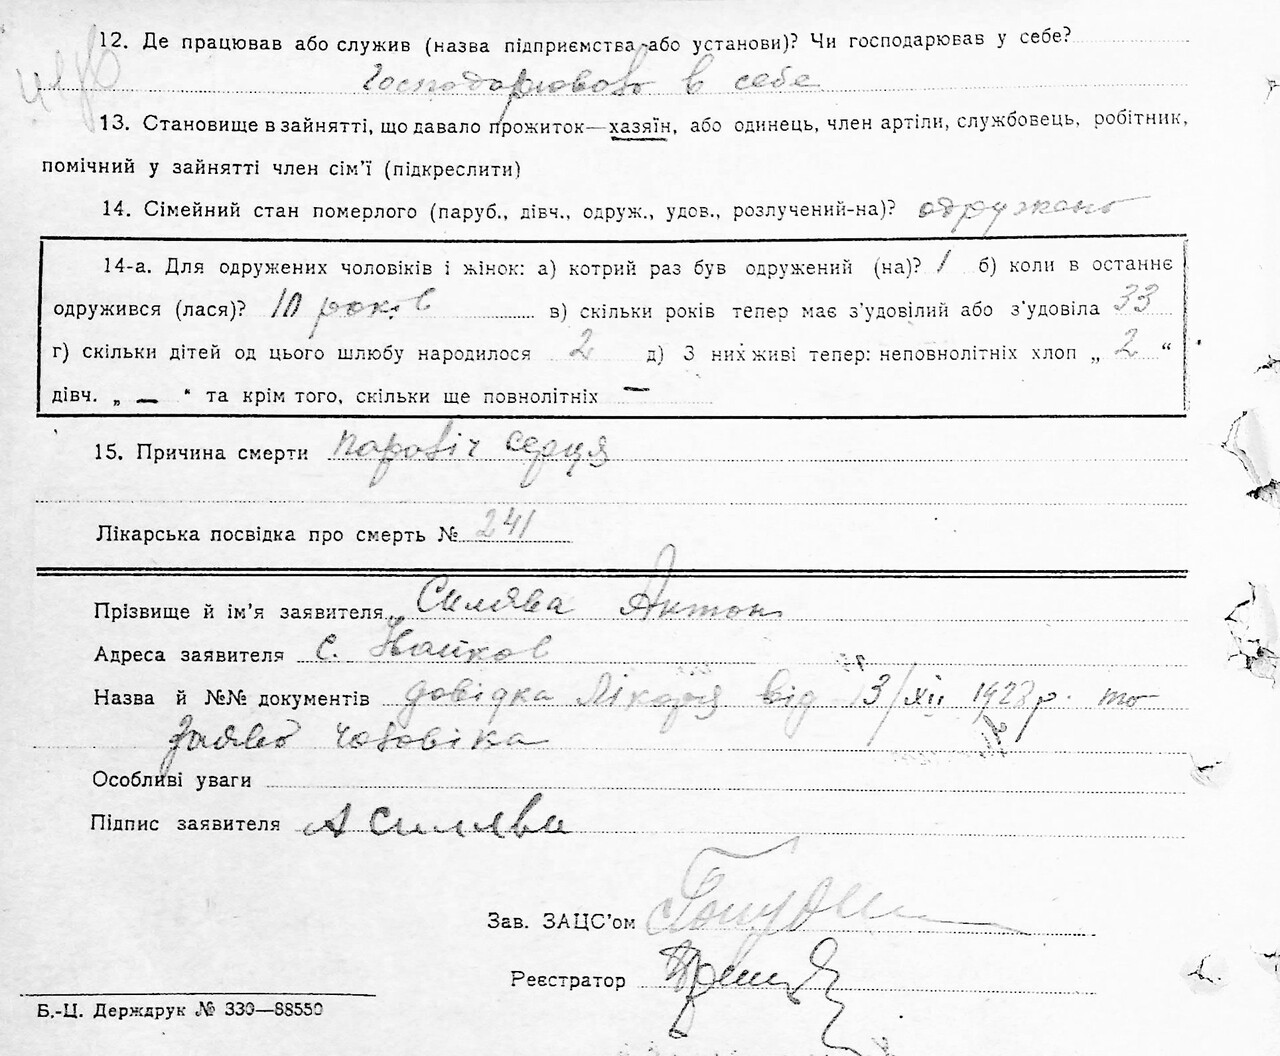 12. Де працював або служив (назва підприємства або установи)? Чи господарював у себе?
Господарював в себе
13. Становище в зайнятті, що давало прожиток—хазяїн, або одинець, член артіли, службовець, робітник,
помічний у зайнятті член сім'ї (підкреслити)
14. Сімейний стан померлого (паруб., дівч., одруж., удов., розлучений-на)? одружено
14-а. Для одружених чоловіків і жінок: а) котрий раз був одружений (на)? 1 б) коли в останнє
одружився (лася)? 10 років в) скільки років тепер має з'удовілий або з'удовіла 33
г) скільки дітей од цього шлюбу народилося 2 д) З них живі тепер: неповнолітніх хлоп „ 2 “
дівч. „ — " та крім того, скільки ще повнолітніх —
15. Причина смерти паровіч серця
Лікарська посвідка про смерть № 241
Прізвище й ім'я заявителя Силява Антон
Адреса заявителя с.
Назва й №№ документів довідка лікаря від 13/XII 1928 р. та
заява чоловіка
Особливі уваги
Підпис заявителя А Силява
Зав. ЗАЦС'ом
Реєстратор
Б.-Ц. Держдрук № 330—88550